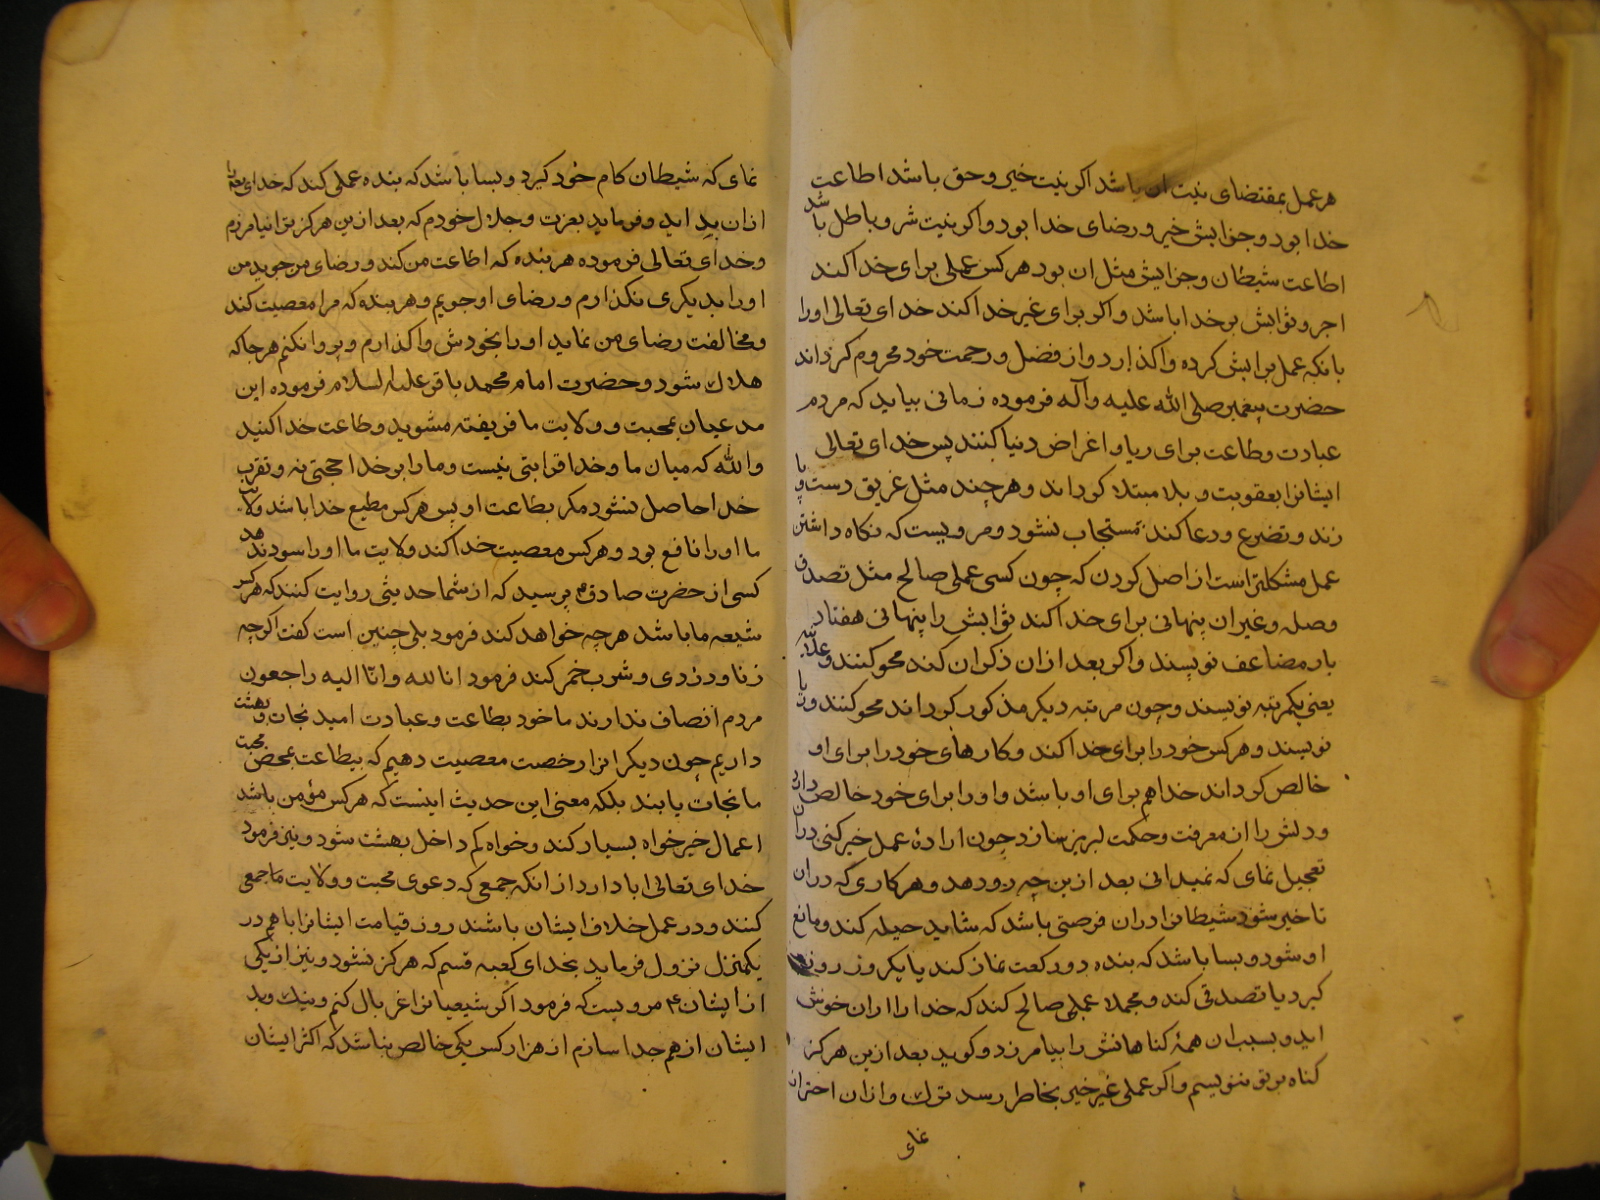 هر عمل بمقتضای نیت ان باشد اکر نیت خیر و حق باشد اطاعت
خدا بود و جزایش خیر و رضای خدا بود و اکر نیت شر و باطل باشد
اطاعت شیطان و جزایش مثل ان بود هر کس عملی برای خدا کند
اجر و ثوابش بر خدا باشد و اکر برای غیر خدا کند خدای تعالی او را
بانکه عمل برایش کرده واکذارد و از فضل و رحمت خود محروم کرداند
حضرت پیغمبر صلی الله علیه وآله فرموده زمانی بیاید که مردم
عبادت و طاعت برای ریا و اغراض دنیا کنند پس خدای تعالی
ایشانرا بعقوبت و بلا مبتلا کرداند و هر چند مثل غریق دست و پا
زند و تضرع و دعا کند مستجاب نشود و مرویست که نکاه داشتن
عمل مشکلتر است از اصل کردن که چون کسی عملی صالح مثل تصدق
وصله و غیر ان پنهانی برای خدا کند ثوابش را پنهانی هفتاد
بار مضاعف نویسند و اکر بعد از ان ذکر ان کند محو کنند و علانیه
یعنی یکمرتبه نویسند و چون مرتبه دیکر مذکور کرداند محو کنند و ریا
نویسند و هر کس خود را برای خدا کند و کارهای خود را برای او
خالص کرداند خدا هم برای او باشد و او را برای خود خالص دارد
و دلش را از معرفت و حکمت لبریز سازد چون ارادهٔ عمل خیر کنی دران
تعجیل نمای که نمیدانی بعد ازین چه رو دهد و هر کاری که دران
تاخیر شود شیطانرا دران فرصتی باشد که شاید حیله کند و مانع
او شود و بسا باشد که بنده دو رکعت نماز کند یا یکروز روزه
کیرد یا تصدقی کند و مجملا عملی صالح کند که خدا را ازان خوش
اید و بسبب ان همهٔ کناهانش را بیامرزد و کوید بعد ازین هرکز
کناه بر تو ننویسم و اکر عملی غیر خیر بخاطر رسد ترک و ازان احتراز
نمای
نمای که شیطان کام خود کیرد و بسا باشد که بنده عملی کند که خدای تعالی را
ازان بد اید و فرماید بعزت و جلال خودم که بعد ازین هرکز ترا نیامرزم
و خدای تعالی فرموده هر بنده که اطاعت من کند و رضای من جوید من
او را بدیکری نکذارم و رضای او جویم و هر بنده که مرا معصیت کند
و مخالفت رضای من نماید او را بخودش واکذارم و پروا نکنم هر جا که
هلاک شود و حضرت امام محمد باقر علیه السلام فرموده این
مدعیان بمحبت و ولایت ما فریفته مشوید و طاعت خدا کنید
والله که میان ما و خدا قرابتی نیست و ما را بر خدا حجتی نه و تقرب
خدا حاصل نشود مکر بطاعت او پس هر کس مطیع خدا باشد ولایت
ما او را نافع بود و هر کس معصیت خدا کند ولایت ما او را سود ندهد
کسی از حضرت صادق ع پرسید که از شما حدیثی روایت کنند که هر که
شیعه ما باشد هر چه خواهد کند فرمود بلی چنین است کفت اکرچه
زنا و دزدی و شرب خمر کند فرمود انا لله وانّا الیه راجعون
مردم انصاف ندارند ما خود بطاعت و عبادت امید نجات و بهشت
داریم چون دیکرانرا رخصت معصیت دهیم که بیطاعت بمحض محبت
ما نجات یابند بلکه معنی این حدیث اینست که هر کس مؤمن باشد
اعمال خیر خواه بسیار کند و خواه کم داخل بهشت شود و نیز فرمود
خدای تعالی ابا دارد از انکه جمعی که دعوی محبت و ولایت ما جمعی
کنند و در عمل خلاف ایشان باشند روز قیامت ایشانرا با هم در
یکمنزل نزول فرماید بخدای کعبه قسم که هرکز نشود و نیز از یکی
از ایشان ع مرویست که فرمود اکر شیعیانرا غربال کنم و نیک و بد
ایشان از هم جدا سازم از هزار کس یکی خالص نباشد که اکثر ایشان